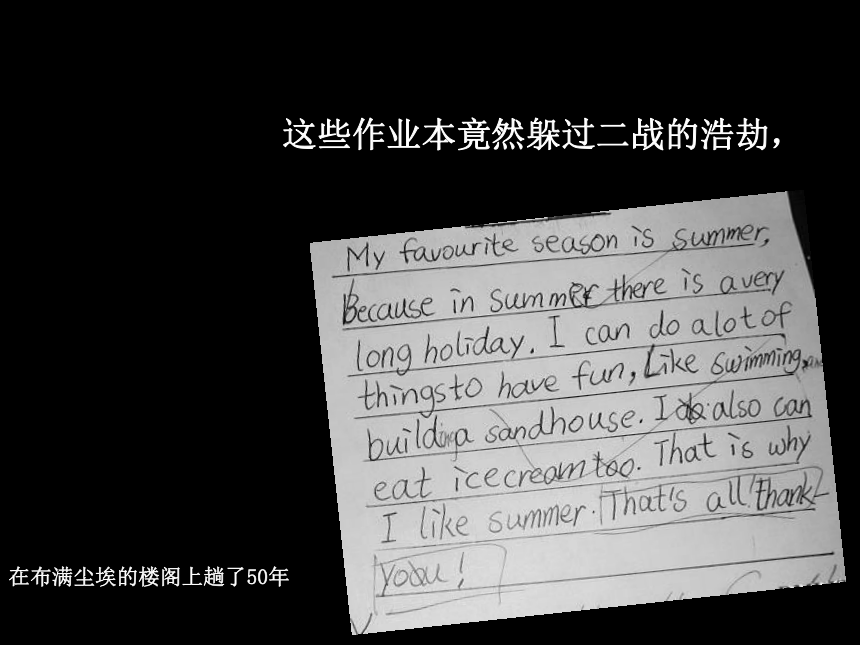 这些作业本竟然躲过二战的浩劫，
My favourite season is summer,
Because in summer there is a very
long holiday. I can do a lot of
things to have fun, Like swimming, and
building a sandhouse. I do also can
eat icecream too. That is why
I like summer. That's all! thank
you!
在布满尘埃的楼阁上趟了50年